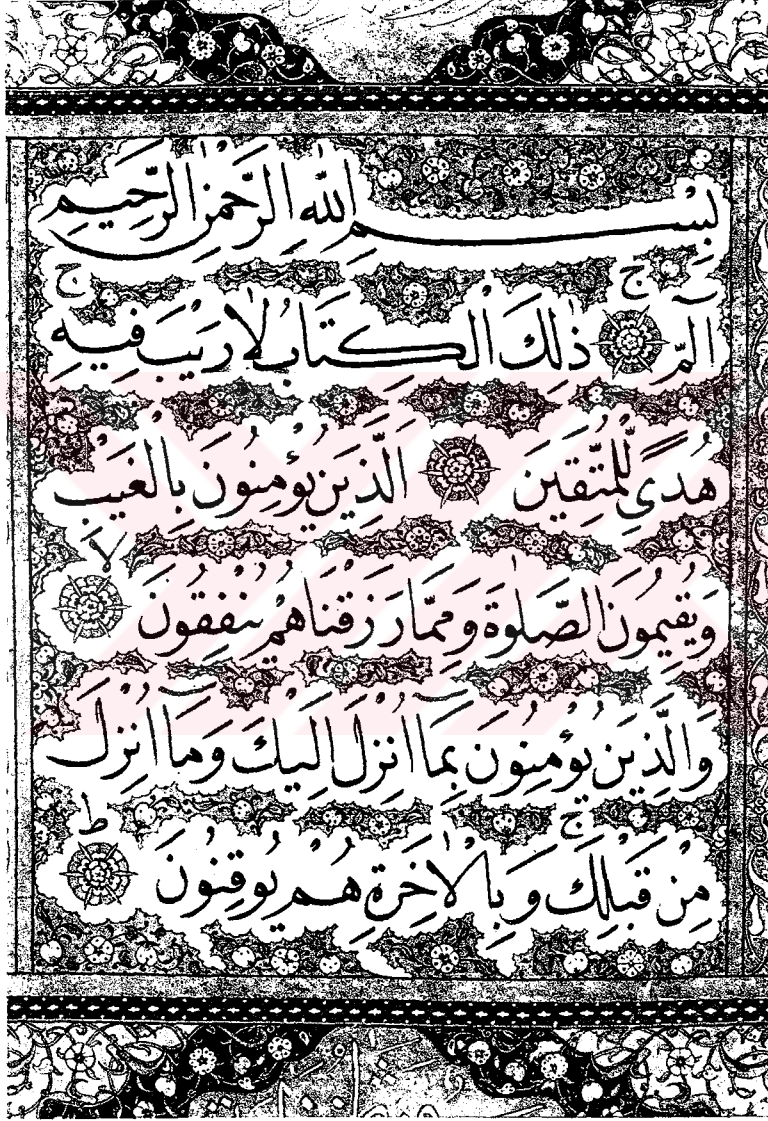 بِسْمِ اللّٰهِ الرَّحْمٰنِ الرَّحِيمِ
الٓمّٓ ذٰلِكَ الْكِتَابُ لَا رَيْبَ ۚ فِيهِ ۚ
هُدًى لِلْمُتَّقِينَ الَّذِينَ يُؤْمِنُونَ بِالْغَيْبِ
وَيُقِيمُونَ الصَّلٰوةَ وَمِمَّا رَزَقْنَاهُمْ يُنْفِقُونَ ۙ
وَالَّذِينَ يُؤْمِنُونَ بِمَٓا اُنْزِلَ اِلَيْكَ وَمَٓا اُنْزِلَ
مِنْ قَبْلِكَ ۚ وَبِالْاٰخِرَةِ هُمْ يُوقِنُونَ ۜ